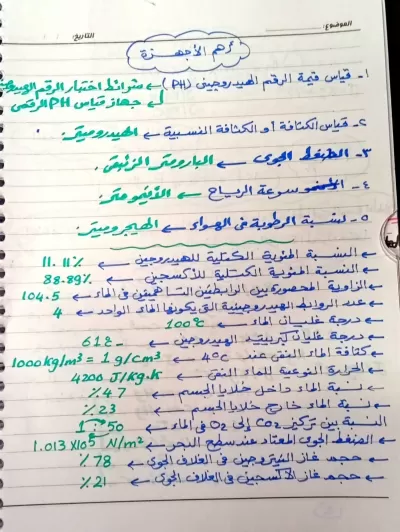 الموضوع:
التاريخ:
أهم الأجهزة
١- قياس قيمة الرقم الهيدروجيني (PH) ← شرائط اختبار الرقم الهيدروجيني
↳ جهاز قياس PH الرقمى
٢- قياس الكثافة أو الكثافة النسبية ← الهيدروميتر.
٣- الضغط الجوى ← البارومتر الزئبقى.
٤- سرعة الرياح ← الأنيمومتر.
٥- نسبة الرطوبة فى الهواء ← الهيجروميتر.
النسبة المئوية الكتلية للهيدروجين ← 11.11%
النسبة المئوية الكتلية للأكسجين ← 88.89%
الزاوية المحصورة بين الرابطتين التساهميتين فى الماء ← 104.5
عدد الروابط الهيدروجينية التى يكونها الماء الواحد ← 4
درجة غليان الماء ← 100°C
درجة غليان كبريتيد الهيدروجين ← -61°
كثافة الماء النقى عند 4°C ← 1000kg/m³ = 1 g/cm³
الحرارة النوعية للماء النقى ← 4200 J/Kg.K
نسبة الماء داخل خلايا الجسم ← ٪47
نسبة الماء خارج خلايا الجسم ← ٪23
النسبة بين تركيز CO2 إلى O2 فى الماء ← 1 : 50
الضغط الجوى المعتاد عند سطح البحر ← 1.013 X10⁵ N/m²
حجم غاز النيتروجين فى الغلاف الجوى ← ٪78
حجم غاز الأكسجين فى الغلاف الجوى ← ٪21